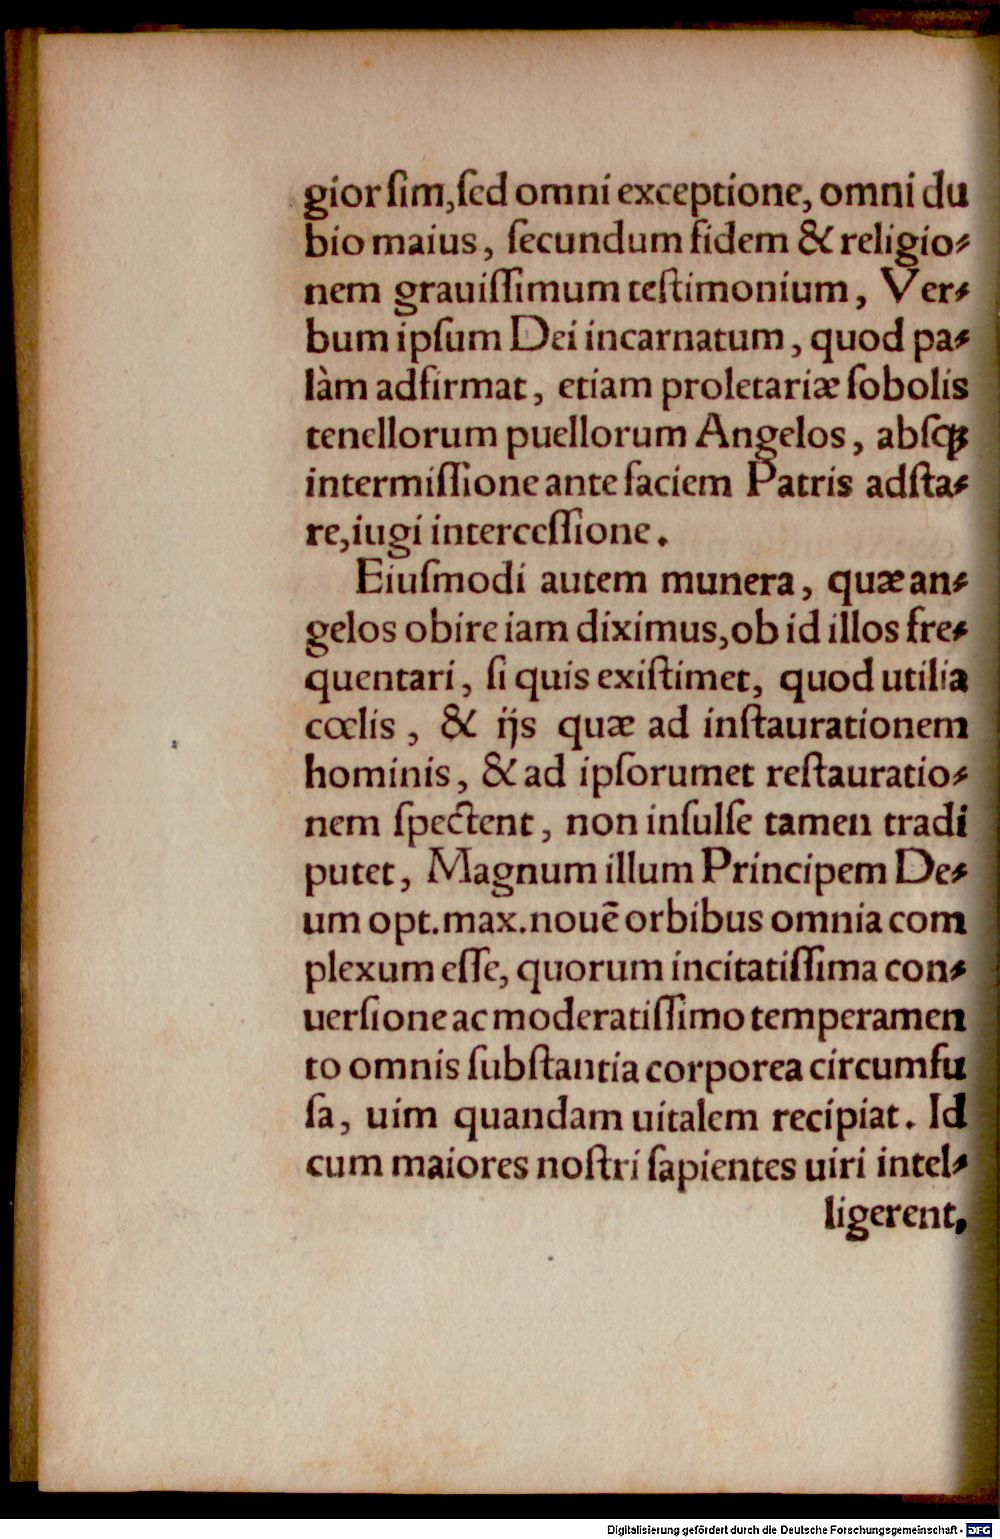 gior ſim, ſed omni exceptione, omni du
bio maius, ſecundum fidem & religio⸗
nem grauiſſimum teſtimonium, Ver⸗
bum ipſum Dei incarnatum, quod pa⸗
làm adfirmat, etiam proletariæ ſobolis
tenellorum puellorum Angelos, abſqꝫ
intermiſſione ante faciem Patris adſta⸗
re, iugi interceſſione.
Eiuſmodi autem munera, quæ an⸗
gelos obire iam diximus, ob id illos fre⸗
quentari, ſi quis exiſtimet, quod utilia
cœlis, & ijs quæ ad inſtaurationem
hominis, & ad ipſorumet reſtauratio⸗
nem ſpectent, non inſulſe tamen tradi
putet, Magnum illum Principem De⸗
um opt. max. nouē orbibus omnia com
plexum eſſe, quorum incitatiſſima con⸗
uerſione ac moderatiſſimo temperamen
to omnis ſubſtantia corporea circumfu
ſa, uim quandam uitalem recipiat. Id
cum maiores noſtri ſapientes uiri intel⸗
ligerent,
Digitalisierung gefördert durch die Deutsche Forschungsgemeinschaft - DFG